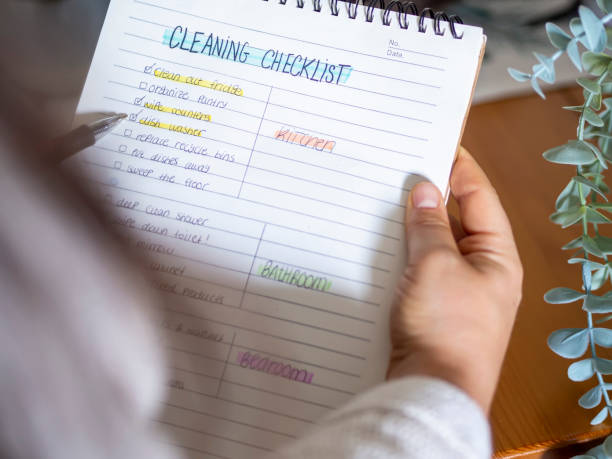 No.
Date.
CLEANING CHECKLIST
clean out fridge
organize pantry
wipe counters
dish washer
replace recycle bins
put dishes away
sweep the floor
KITCHEN
deep clean shower
down toilet!
BATHROOM
products
BEDROOM